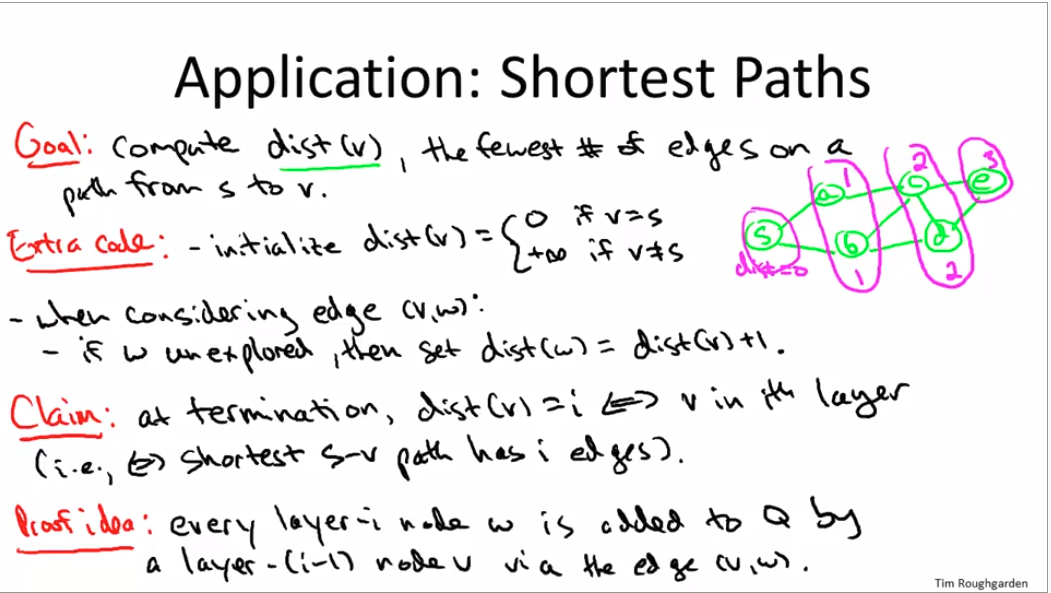 Application: Shortest Paths
Goal: compute dist(v), the fewest # of edges on a
path from s to v.
Extra code: - initialize dist(v) = { 0 if v=s
+∞ if v≠s
- when considering edge (v,w):
- if w unexplored, then set dist(w) = dist(v)+1.
Claim: at termination, dist(v)=i <=> v in ith layer
(i.e., <=> shortest s-v path has i edges).
Proof idea: every layer-i node w is added to Q by
a layer-(i-1) node v via the edge (v,w).
1 2 3
a c e
s b d
dist=0 1 2
Tim Roughgarden